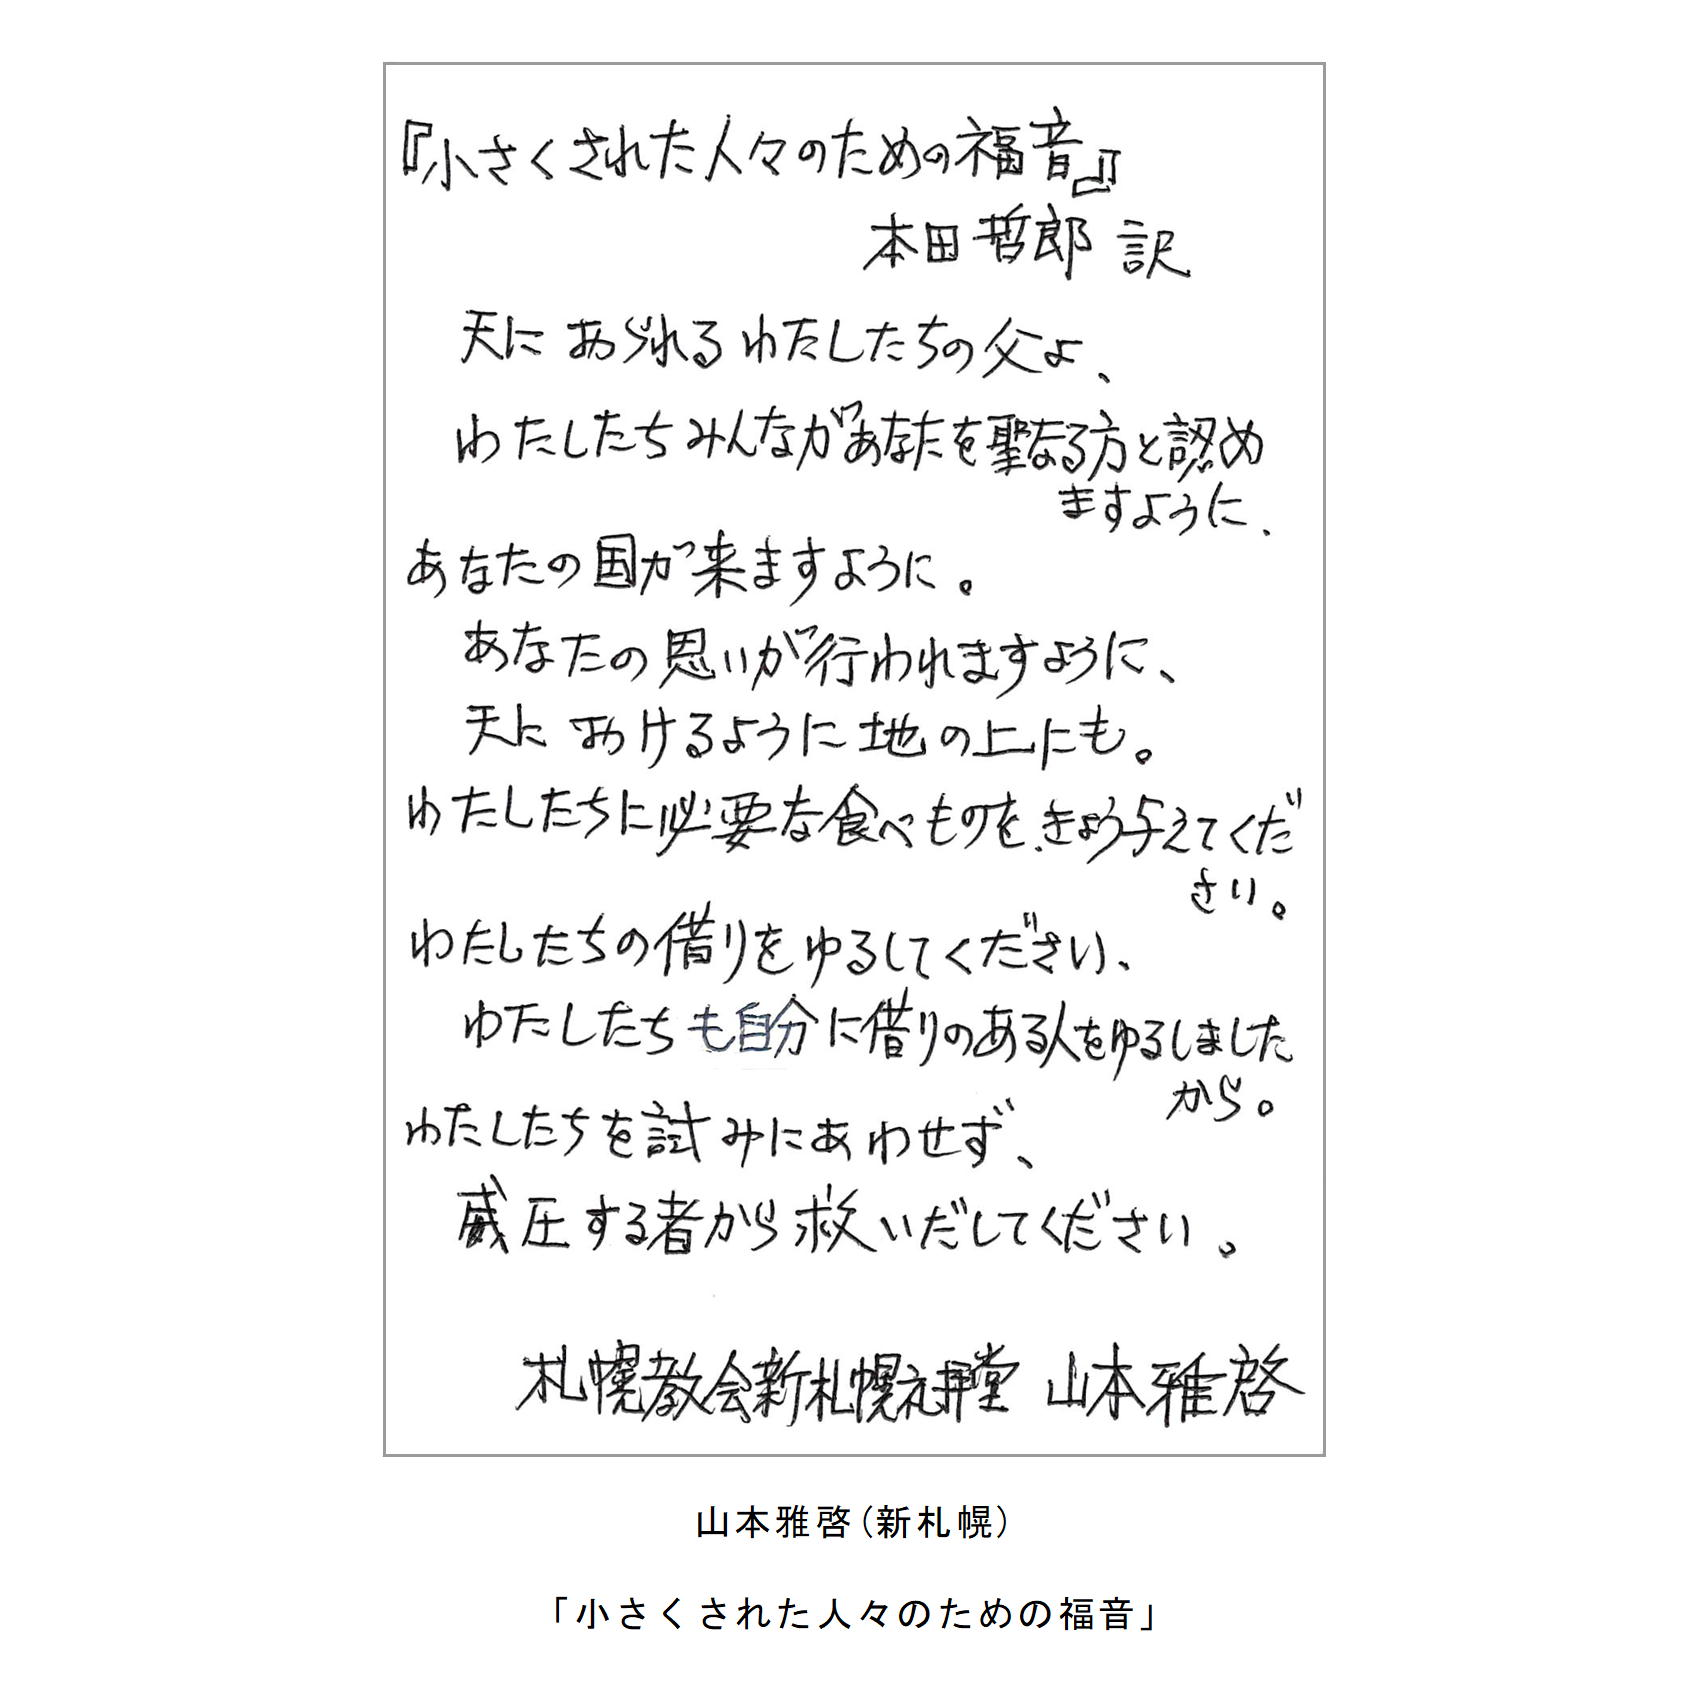 『小さくされた人々のための福音』
本田哲郎 訳
天におられるわたしたちの父よ、
わたしたちみんながあなたを聖なる方と認め
ますように、
あなたの国が来ますように。
あなたの思いが行われますように、
天におけるように地の上にも。
わたしたちに必要な食べものを、きょう与えてくだ
さい。
わたしたちの借りをゆるしてください、
わたしたちも自分に借りのある人をゆるしました
から。
わたしたちを試みにあわせず、
威圧する者から救いだしてください。
札幌教会新札幌礼拝堂 山本雅啓
山本雅啓(新札幌)
「小さくされた人々のための福音」